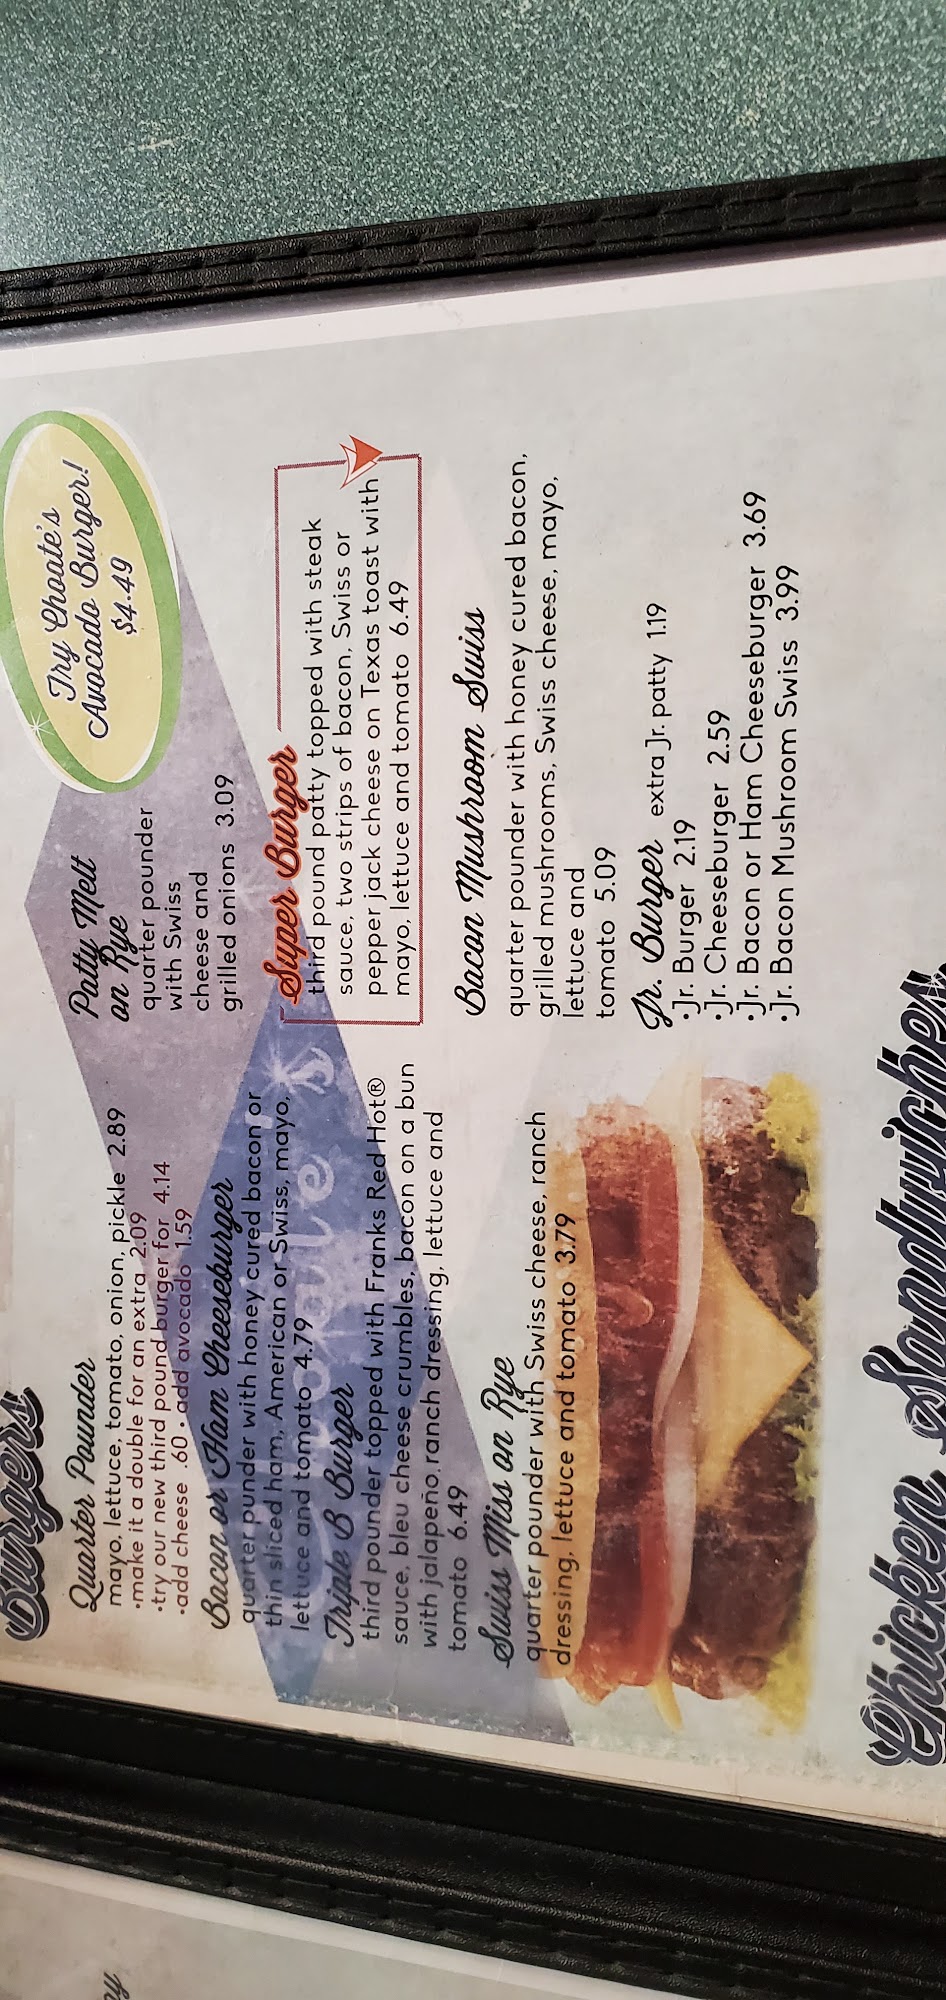 Burgers
Quarter Pounder
mayo, lettuce, tomato, onion, pickle 2.89
•make it a double for an extra 2.09
•try our new third pound burger for 4.14
•add cheese .60 • add avocado 1.59
Bacon or Ham Cheeseburger
quarter pounder with honey cured bacon or
thin sliced ham, American or Swiss, mayo,
lettuce and tomato 4.79
Triple B Burger
third pounder topped with Franks Red Hot®
sauce, bleu cheese crumbles, bacon on a bun
with jalapeño ranch dressing, lettuce and
tomato 6.49
Swiss Miss on Rye
quarter pounder with Swiss cheese, ranch
dressing, lettuce and tomato 3.79
Try Choate's
Avocado Burger!
$4.49
Patty Melt
on Rye
quarter pounder
with Swiss
cheese and
grilled onions 3.09
Super Burger
third pound patty topped with steak
sauce, two strips of bacon, Swiss or
pepper jack cheese on Texas toast with
mayo, lettuce and tomato 6.49
Bacon Mushroom Swiss
quarter pounder with honey cured bacon,
grilled mushrooms, Swiss cheese, mayo,
lettuce and
tomato 5.09
Jr. Burger extra Jr. patty 1.19
•Jr. Burger 2.19
•Jr. Cheeseburger 2.59
•Jr. Bacon or Ham Cheeseburger 3.69
•Jr. Bacon Mushroom Swiss 3.99
Chicken Sandwiches